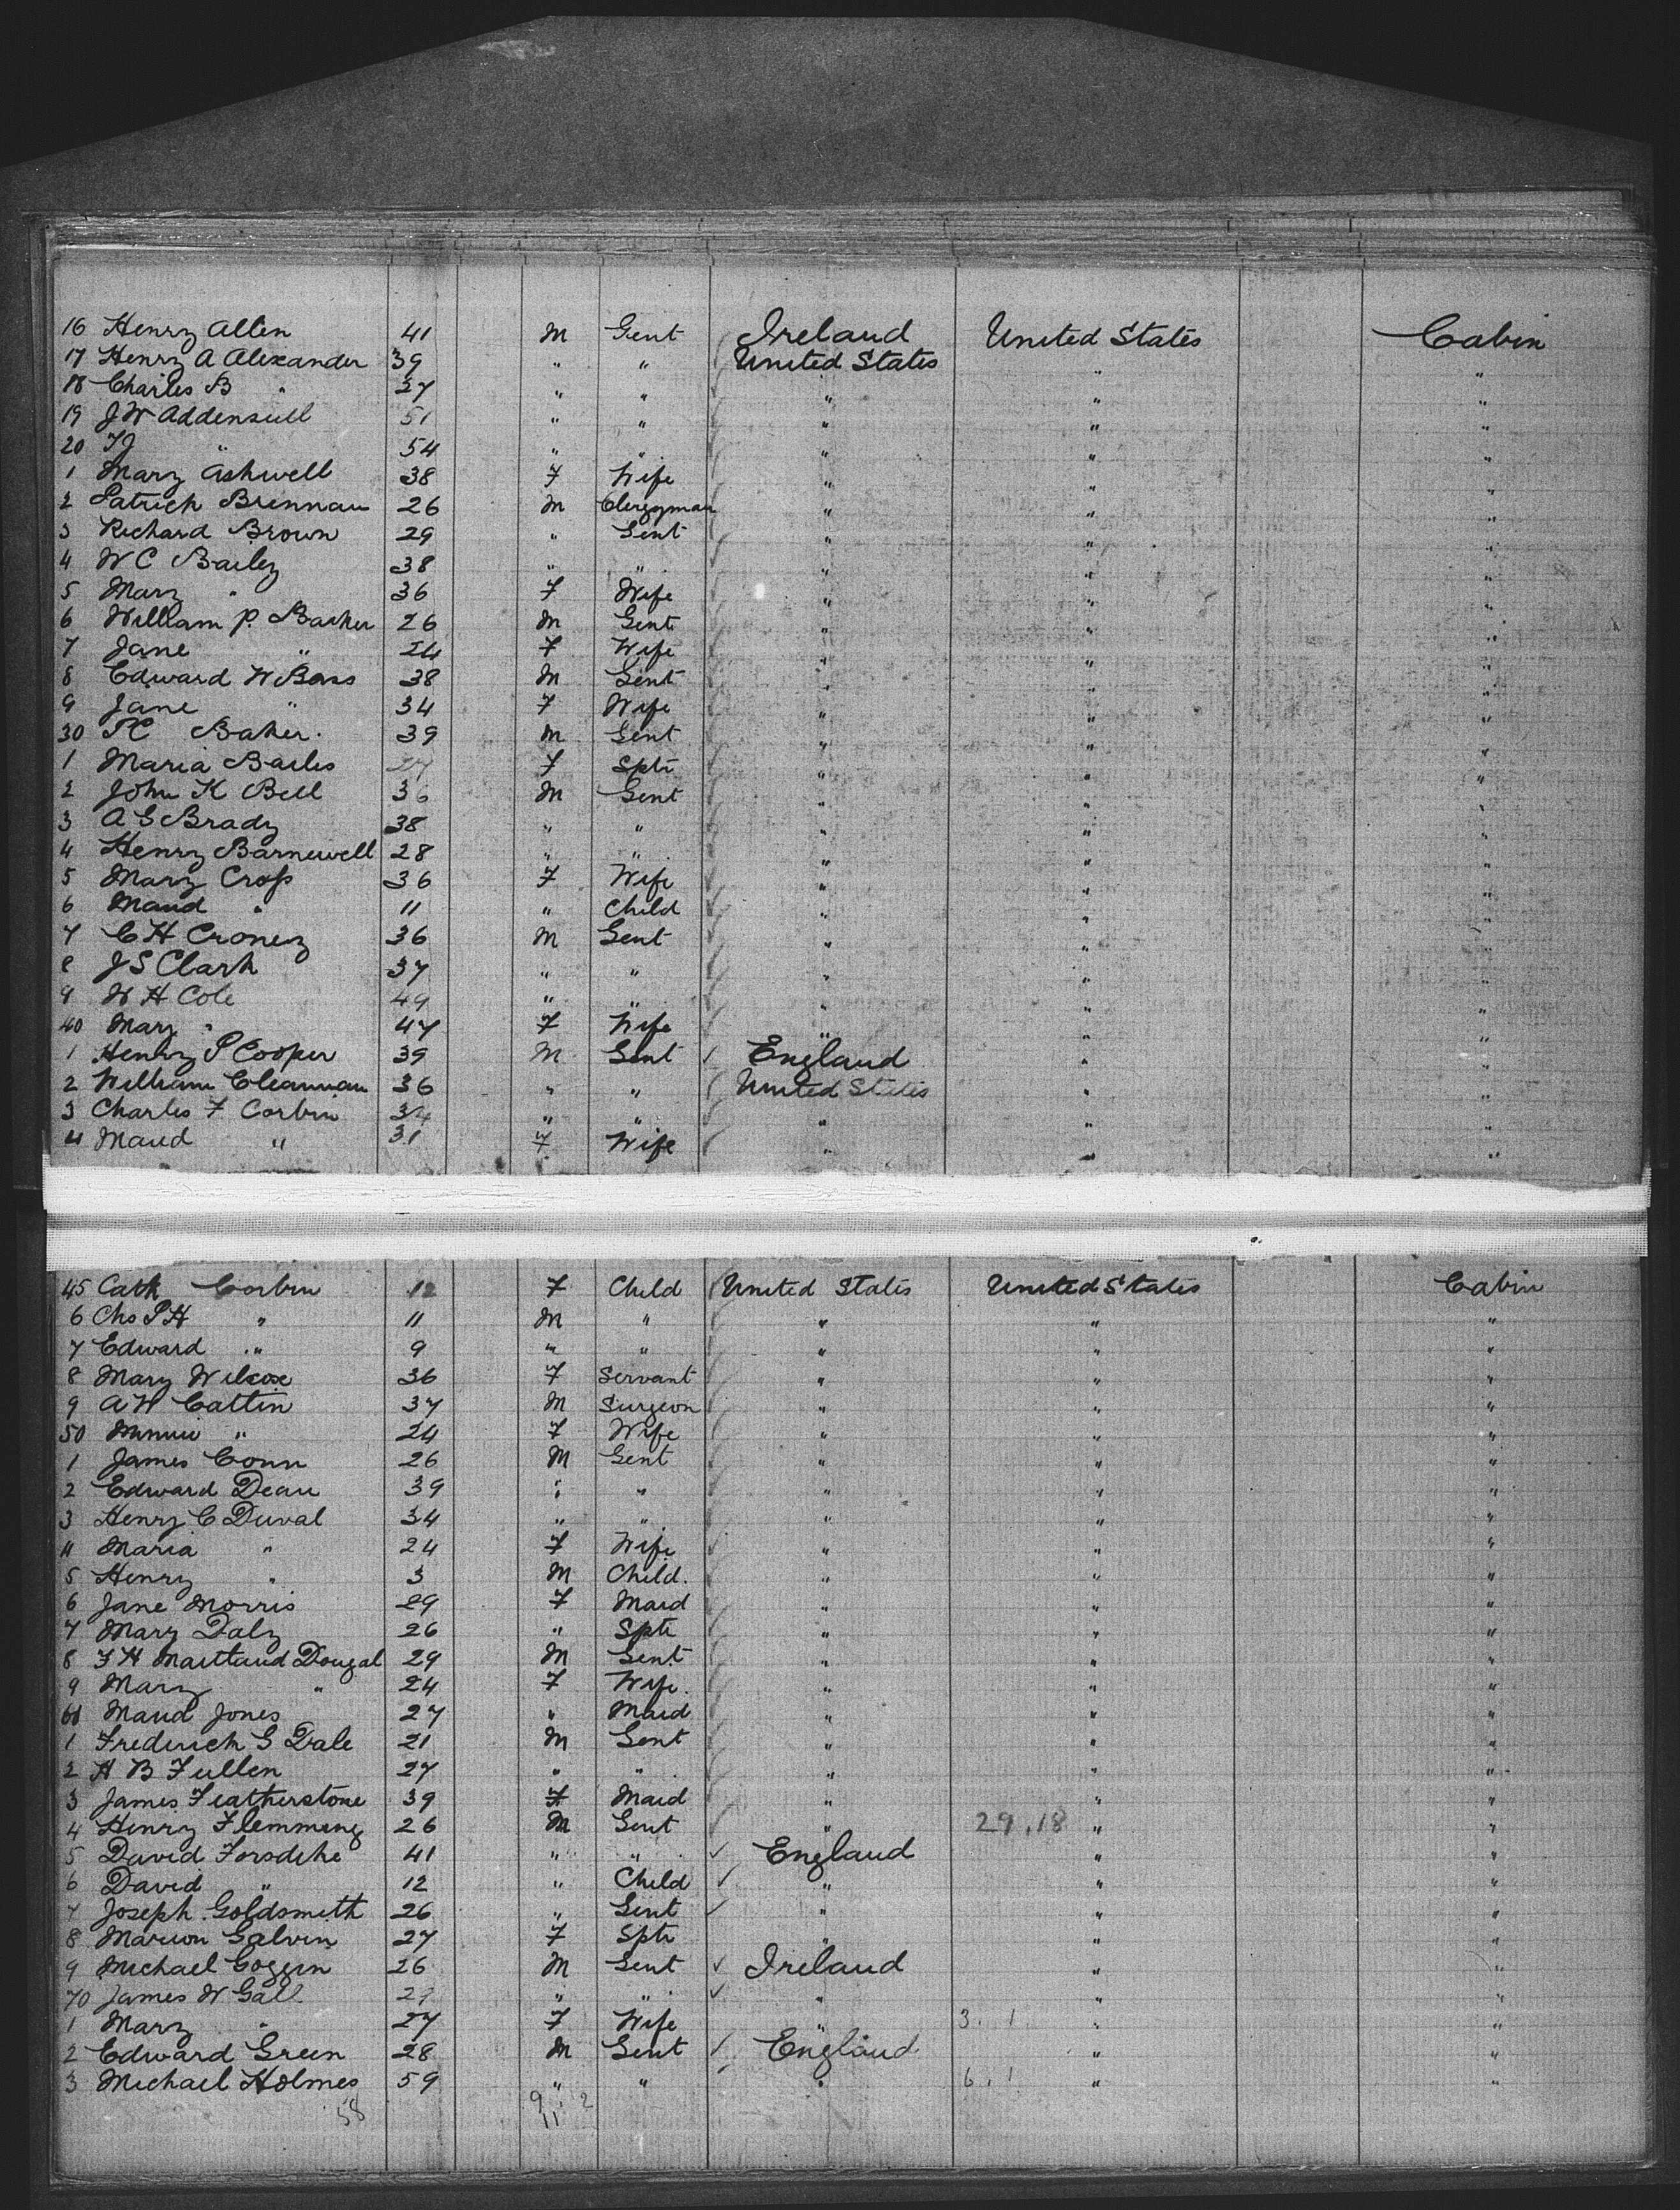 16 Henry Allen 41 M Gent Ireland United States Cabin
17 Henry A Alexander 39 " " United States " "
18 Charles B " 27 " " " " "
19 J W Addensull 51 " " " " "
20 T J " 54 " " " " "
1 Mary Ashwell 38 F Wife " " "
2 Patrick Brennan 26 M Clergyman " " "
3 Richard Brown 29 " Gent " " "
4 W C Bailey 38 " " " " "
5 Mary " 36 F Wife " " "
6 William P. Barker 26 M Gent " " "
7 Jane " 24 F Wife " " "
8 Edward W Bass 38 M Gent " " "
9 Jane " 34 F Wife " " "
30 Baker 39 M Gent " " "
1 Maria Bailes 27 F Sptr " " "
2 John K Bell 36 M Gent " " "
3 A G Brady 38 " " " " "
4 Henry Barnewell 28 " " " " "
5 Mary Cross 36 F Wife " " "
6 Maud " 11 " Child " " "
7 C H Croney 36 M Gent " " "
8 J S Clark 37 " " " " "
9 W H Cole 49 " " " " "
40 Mary " 47 F Wife " " "
1 Henry P Cooper 39 M Gent England " "
2 William Cleannan 36 " " United States " "
3 Charles F Corbin 34 " " " " "
4 Maud " 31 F Wife " " "
45 Cath Corbin 12 F Child United States United States Cabin
6 Chs P H " 11 M " " " "
7 Edward " 9 " " " " "
8 Mary Wilcox 36 F Servant " " "
9 A W Cattin 37 M Surgeon " " "
50 Minnie " 24 F Wife " " "
1 James Conn 26 M Gent " " "
2 Edward Dean 39 " " " " "
3 Henry C Duval 34 " " " " "
4 Maria " 24 F Wife " " "
5 Henry " 3 M Child. " " "
6 Jane Morris 29 F Maid " " "
7 Mary Daly 26 " Sptr " " "
8 F H Maitland Dougal 29 M Gent " " "
9 Mary " 24 F Wife. " " "
60 Maud Jones 27 " Maid " " "
1 Frederick G Dale 21 M Gent " " "
2 H B Fullen 27 " " " " "
3 James Featherstone 39 F Maid " " "
4 Henry Flemming 26 M Gent " 29.18 " "
5 David Forsdike 41 " " England " "
6 David " 12 " Child " " "
7 Joseph Goldsmith 26 " Gent " " "
8 Marion Galvin 27 F Sptr " " "
9 Michael Gogein 26 M Gent Ireland " "
70 James W Gall 27 " " " " "
1 Mary " 27 F Wife " 3. 1 " "
2 Edward Green 28 M Gent England " "
3 Michael Holmes 59 " " " 6. 1 " "
58 9 2
11